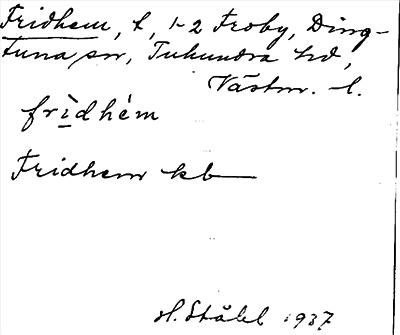 Fridhem, t, 1-2 Froby, Ding-
tuna sn, Tuhundra hd,
Västm. l.
frìdhém
Fridhem kb
H. Ståhl 1937